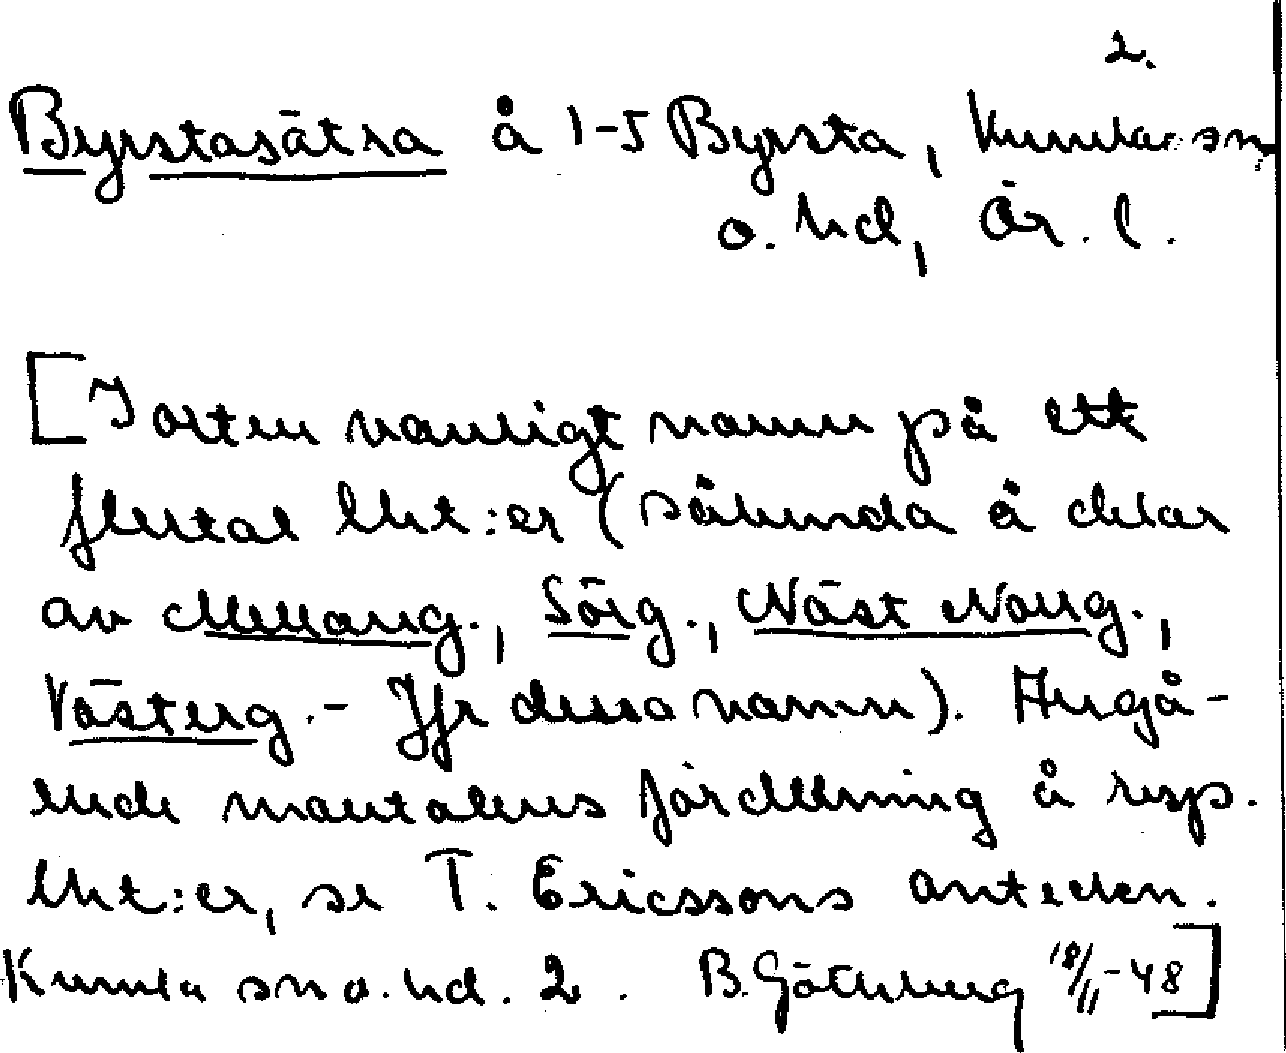 2.
Byrstasätra å 1-5 Byrsta, Kumla sn
o. hd, Är. l.
[I orten vanligt namn på ett
flertal lht:er (sålunda å delar
av Mellang., Sörg., Näst Norrg.,
Västerg. - Jfr dessa namn). Angå-
ende mantalens fördelning å resp.
lht:er, se T. Ericssons anteckn.
Kumla sn o. hd. 2. B. Göthberg 18/11 -48]